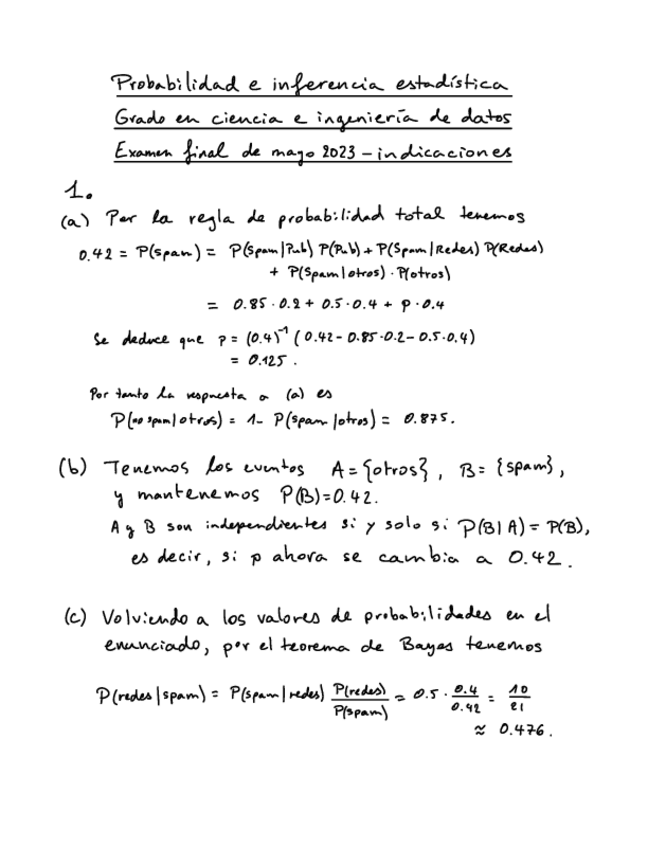 Probabilidad e inferencia estadística
Grado en ciencia e ingeniería de datos
Examen final de mayo 2023 - indicaciones
1.
(a) Por la regla de probabilidad total tenemos
0.42 = P(spam) = P(spam|Pub) P(Pub) + P(Spam|Redes) P(Redes)
+ P(spam|otros) · P(otros)
= 0.85 · 0.2 + 0.5 · 0.4 + p · 0.4
Se deduce que p = (0.4)⁻¹ (0.42 - 0.85 · 0.2 - 0.5 · 0.4)
= 0.125.
Por tanto la respuesta a (a) es
P(no spam|otros) = 1 - P(spam|otros) = 0.875.
(b) Tenemos los eventos A = {otros}, B = {spam},
y mantenemos P(B) = 0.42.
A y B son independientes si y solo si P(B|A) = P(B),
es decir, si p ahora se cambia a 0.42.
(c) Volviendo a los valores de probabilidades en el
enunciado, por el teorema de Bayes tenemos
P(redes|spam) = P(spam|redes) P(redes)/P(spam) = 0.5 · 0.4/0.42 = 10/21
≈ 0.476.